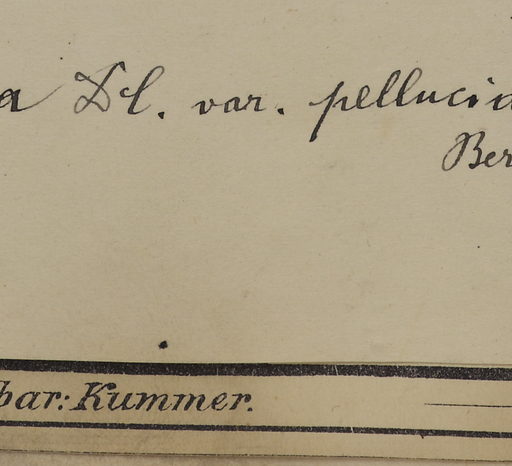 a DC. var. pellucid
Ber
bar: Kummer.